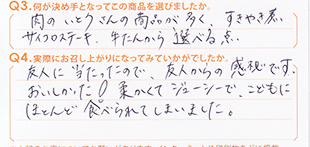 Q3.何が決め手となってこの商品を選びましたか。
肉のいとうさんの商品が多く、すきやき煮
サイコロステーキ、牛たんから選べる点
Q4.実際にお召し上がりになってみていかがでしたか。
友人に当たったので、友人からの感想です。
おいしかった!柔かくてジューシーで、こどもに
ほとんど食べられてしまいました。